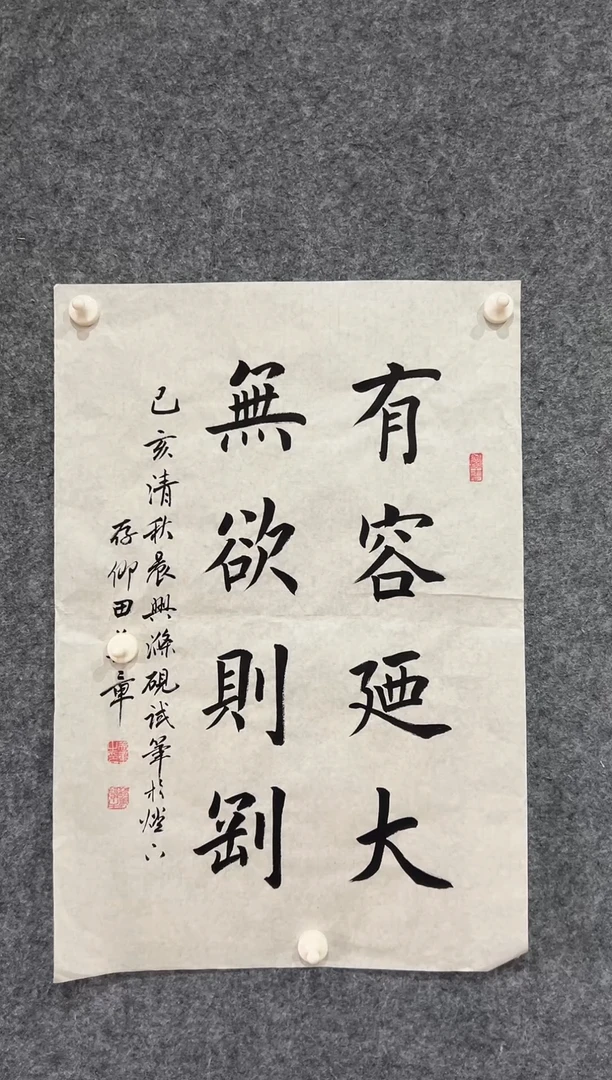 有容廼大
無欲則剛
己亥清秋晨興滌硯試筆於燈下
存仰田 章